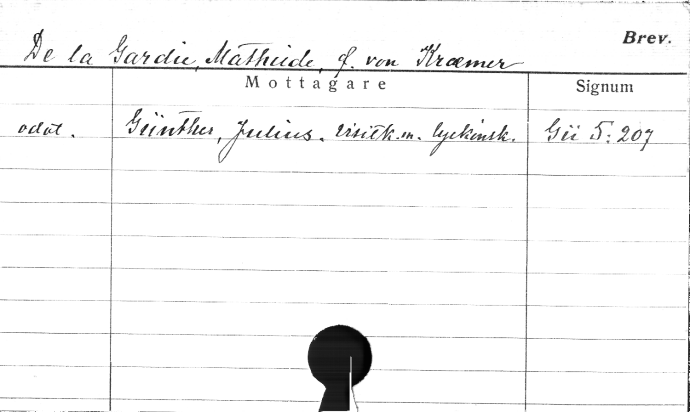 Brev.
De la Gardie, Mathilde, f. von Kræmer
Mottagare Signum
odat. Günther, Julius. visitk. m. lyckönsk. Gü 5: 207